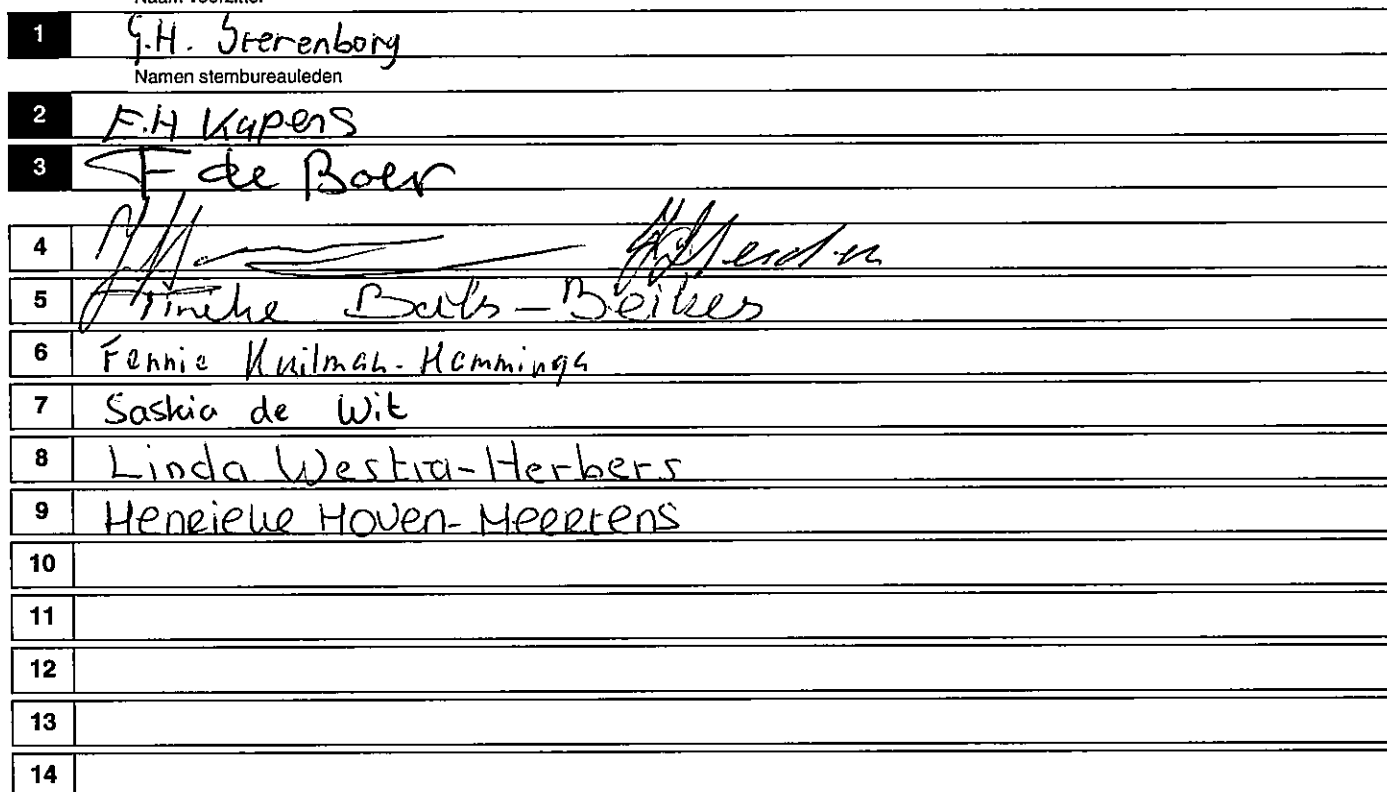 Naam voorzitter
1 G.H. Sterenborg
Namen stembureauleden
2 F.H Kupers
3 F de Boer
4
5 Tineke
6 Fennie Kuilman-Hamminga
7 Saskia de Wit
8 Linda Westra-Herbers
9 Henrieke Hoven-Meertens
10
11
12
13
14